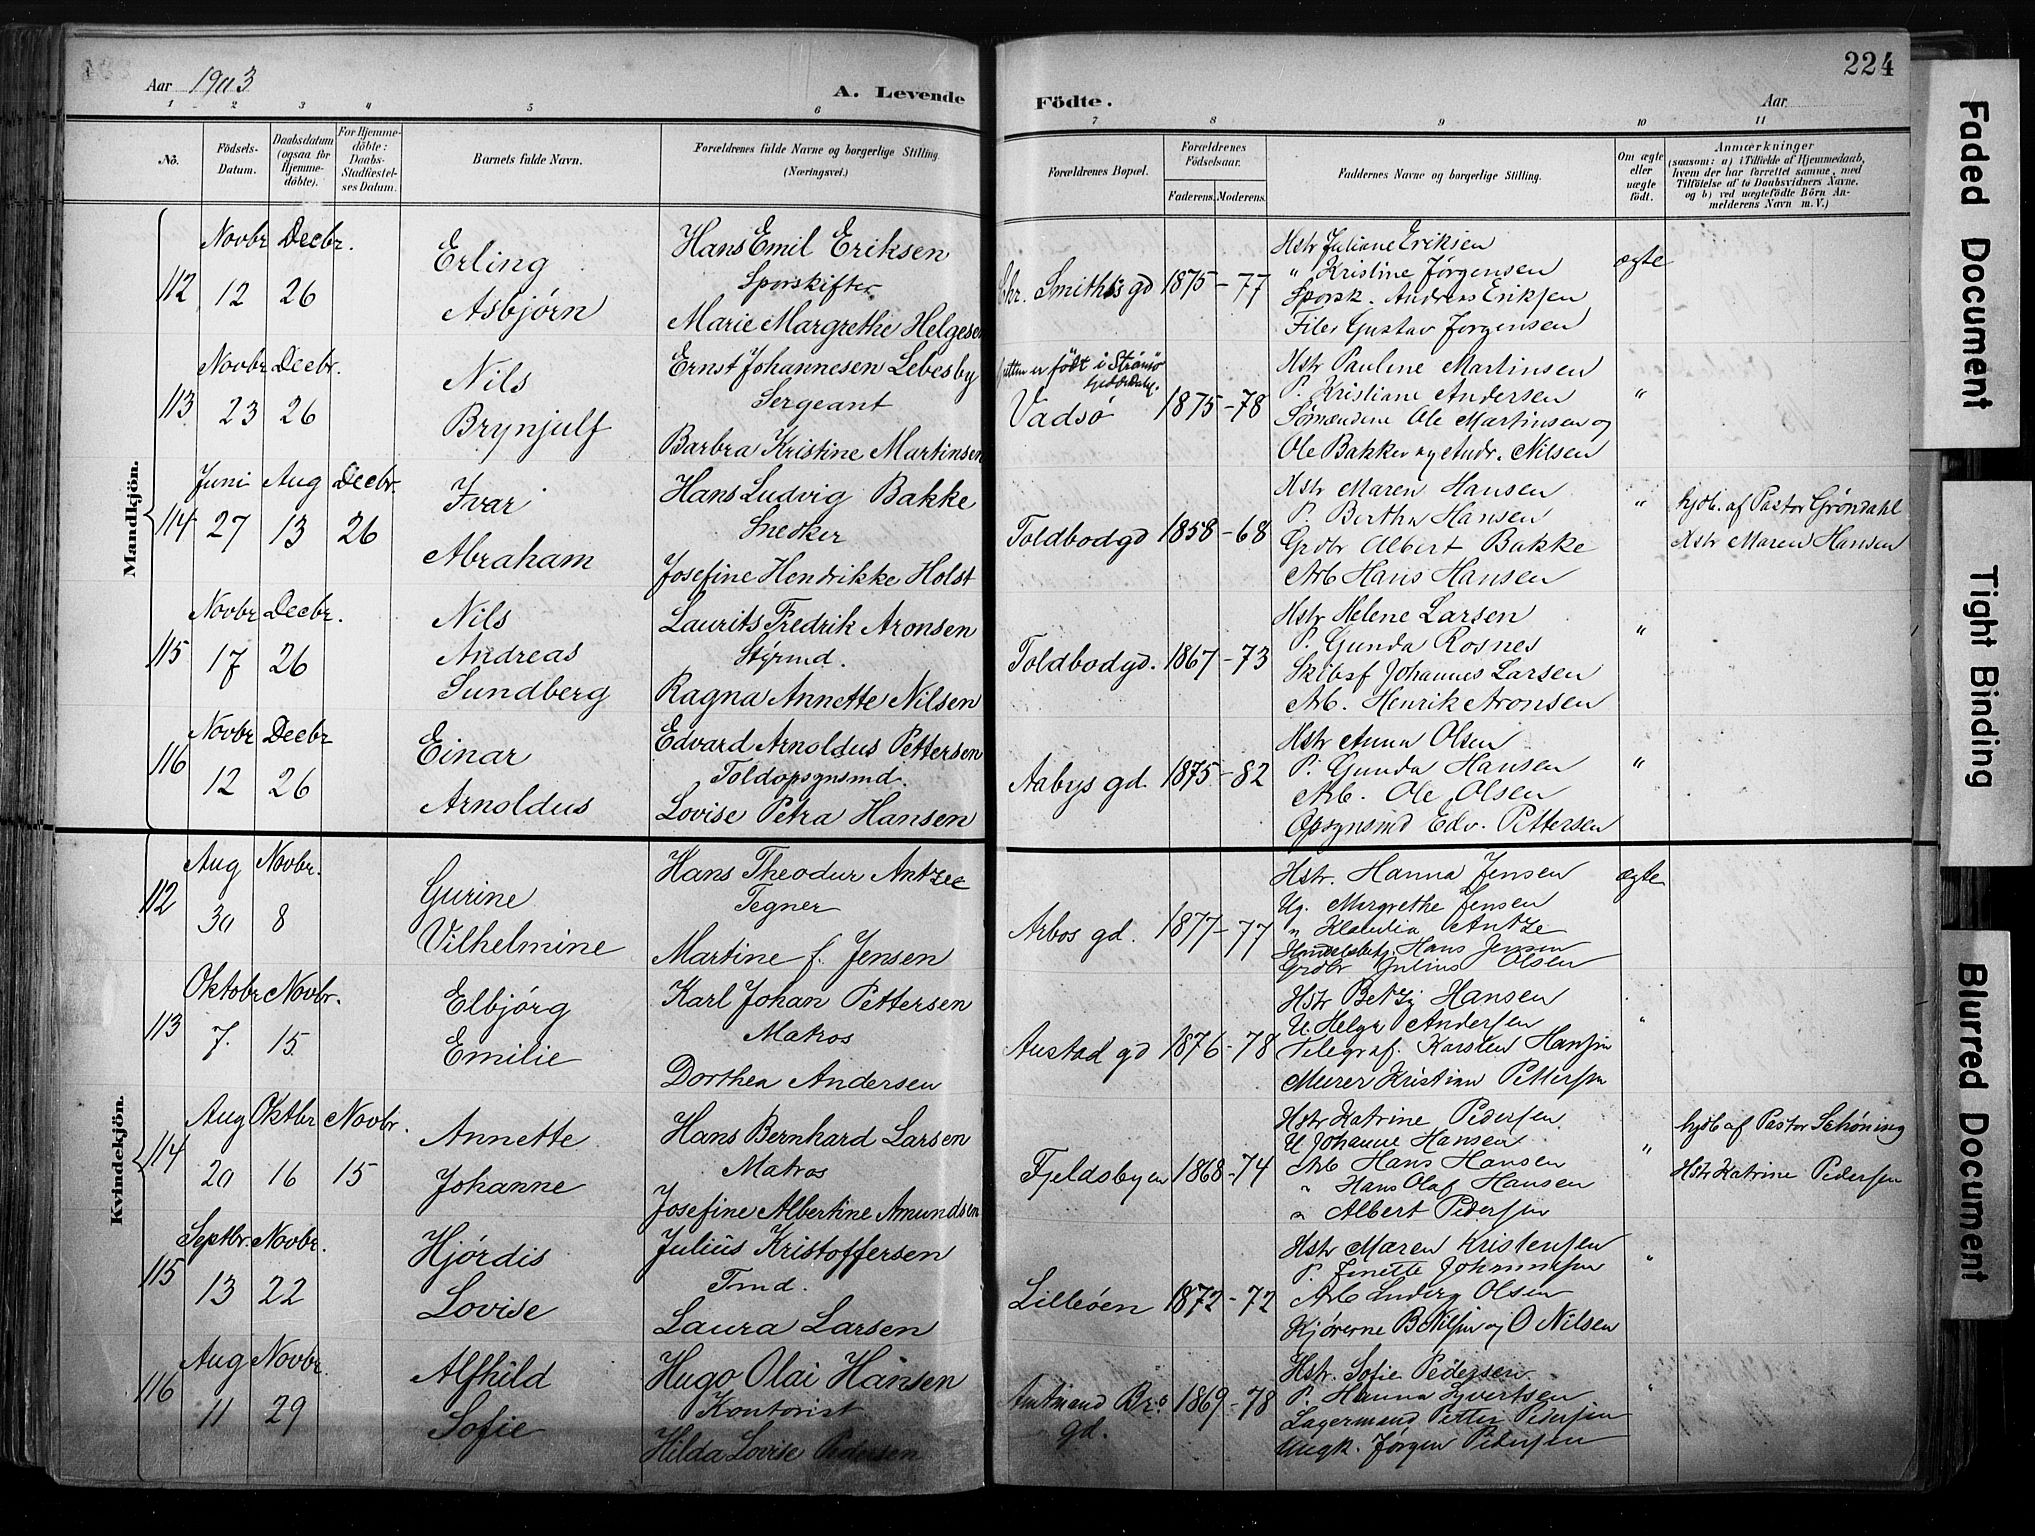 Aar 1903
A. Levende
Födte.
Aar
224
1 2 3 4 5 6 7 8 9 10 11
No.
Födsels-Datum.
Daabsdatum (ogsaa for Hjemme-döbte).
For Hjemme-döbte: Daabs-Stadfæstel-ses Datum.
Barnets fulde Navn.
Forældrenes fulde Navne og borgerlige Stilling. (Næringsvei.)
Forældrenes Bopæl.
Forældrenes Födselsaar.
Faderens. Moderens.
Faddernes Navne og borgerlige Stilling.
Om ægte eller uægte födt.
Anmærkninger
(saasom: a) i Tilfælde af Hjemmedaab,
hvem der har forrettet samme, med
Tilföielse af to Daabsvidners Navne,
og b) ved uægtefödte Börn An-
melderens Navn m. V.)
Mandkjön.
112
Novbr 12
Decbr. 26
Erling
Asbjørn
Hans Emil Eriksen
Sporskifter
Marie Margrethe Helgesen
Chr. Smiths gd
1875-77
Hstr Juliane Eriksen
" Kristine Jørgensen
Sporsk. Andreas Eriksen
Filer Gustav Jørgensen
ægte
113
Novbr 23
Decbr. 26
Nils
Brynjulf
Ernst Johannesen Lebesby
Sergeant
Barbra Kristine Martinsen
er født i Strømsø
Vadsø
1875-78
Hstr Pauline Martinsen
P. Kristiane Andersen
Sømændene Ole Martinsen og
Ole Bakke og Andr. Nilsen
"
114
Juni 27
Aug 13
Decbr. 26
Ivar
Abraham
Hans Ludvig Bakke
Snedker
Josefine Hendrikke Holst
Toldbodgd
1858-68
Hstr Maren Hansen
P. Bertha Hansen
Grdbr Albert Bakke
Arb Hans Hansen
"
hjdb. af Pastor Grøndahl
Hstr Maren Hansen
115
Novbr 17
Decbr. 26
Nils
Andreas
Sundberg
Laurits Fredrik Aronsen
Styrmd.
Ragna Annette Nilsen
Toldbodgd.
1867-73
Hstr Helene Larsen
P. Gunda Rosnes
Skibsf Johannes Larsen
Arb. Henrik Aronsen
"
116
Novbr 12
Decbr 26
Einar
Arnoldus
Edvard Arnoldus Pettersen
Toldopsynsmd.
Lovise Petra Hansen
Aabys gd.
1875-82
Hstr Anna Olsen
P. Gunda Hansen
Arb. Ole Olsen
Opsynsmd Edv. Pettersen
"
Kvindekjön.
112
Aug 30
Novbr. 8
Gurine
Vilhelmine
Hans Theodur Antzee
Tegner
Martine f. Jensen
Arbos gd.
1877-77
Hstr. Hanna Jensen
Ug. Margrethe Jensen
" Klaudia Antze
Handelsbetj. Hans Jensen
Grdbr Julius Olsen
ægte
113
Oktobr 7.
Novbr. 15.
Elbjørg
Emilie
Karl Johan Pettersen
Matros
Dorthea Andersen
Austad gd
1876-78
Hstr Betzy Hansen
U. Helga Andersen
Telegraf. Karsten Hansen
Murer Kristian Pettersen
"
114
Aug 20
Oktbr 16
Novbr. 15
Annette
Johanne
Hans Bernhard Larsen
Matros
Josefine Albertine Amundsen
Fjeldsbyen
1868-74
Hstr Katrine Pedersen.
U Johanne Hansen
Arb Hans Hansen
" Hans Olaf Hansen
" Albert Pedersen
"
hjdb af Pastor Schøning
Hstr Katrine Pedersen
115
Septbr. 13
Novbr. 22
Hjørdis
Lovise
Julius Kristoffersen
Tmd.
Laura Larsen
Lilleøen
1872-72
Hstr Maren Kristensen
P. Jinette Johannesen
Arb Ludvig Olsen
Kjørerne B. Nilsen og O Nilsen
"
116
Aug 11
Novbr. 29
Alfhild
Sofie
Hugo Olai Hansen
Kontorist
Hilda Lovise Pedersen
Amtmand Bre
gd.
1869-78
Hstr. Sofie Pedersen
P. Hanna Syvertsen
Lagermand Petter Pedersen
Ungk. Jørgen Pedersen
"
Faded Document
Tight Binding
Blurred Document